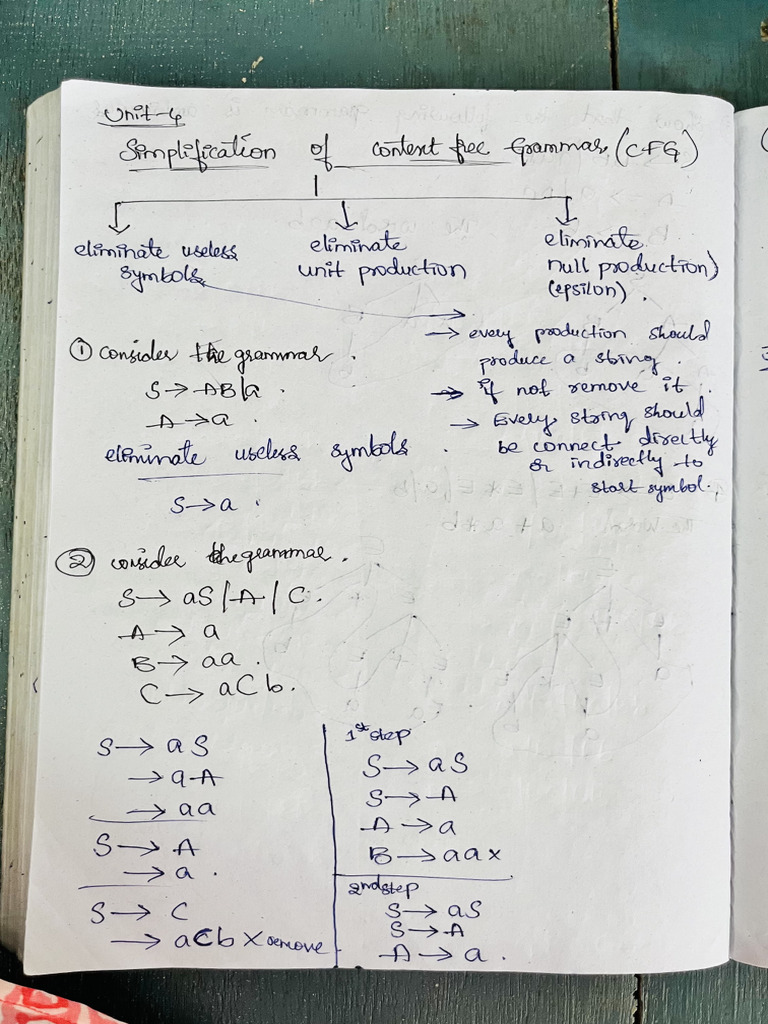 Unit-4
Simplification of context free Grammar (CFG)
eliminate useless symbols
eliminate unit production
eliminate null production) (epsilon).
→
→ every production should
produce a string.
→ if not remove it.
→ Every string should
be connect directly
or indirectly to
start symbol.
① consider the grammar.
S → AB|a.
A → a.
eliminate useless symbols.
S → a.
② consider the grammar.
S → aS | A | C.
A → a
B → aa.
C → aCb.
S → aS
→ aA
→ aa
S → A
→ a.
S → C
→ aCb x remove
1st step
S → aS
S → A
A → a
B → aa x
2nd step
S → aS
S → A
A → a.